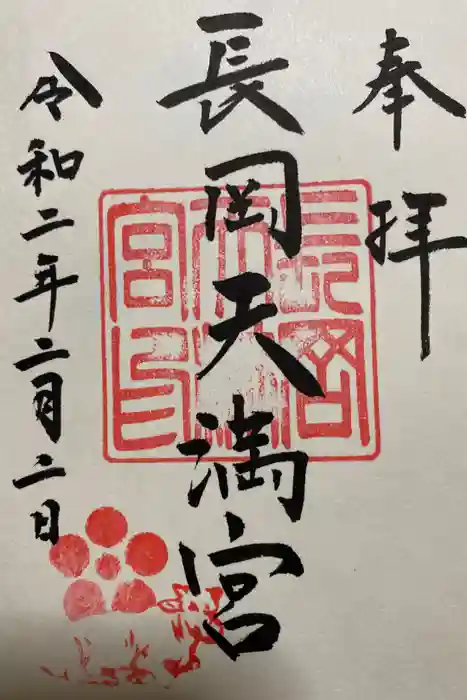 奉拝
長岡天満宮
令和二年二月二日
長岡天満宮印